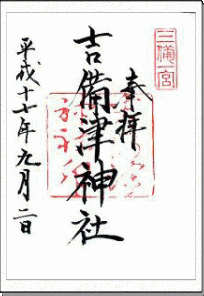 三備一宮
奉拝
吉備津神社
平成十七年九月二日